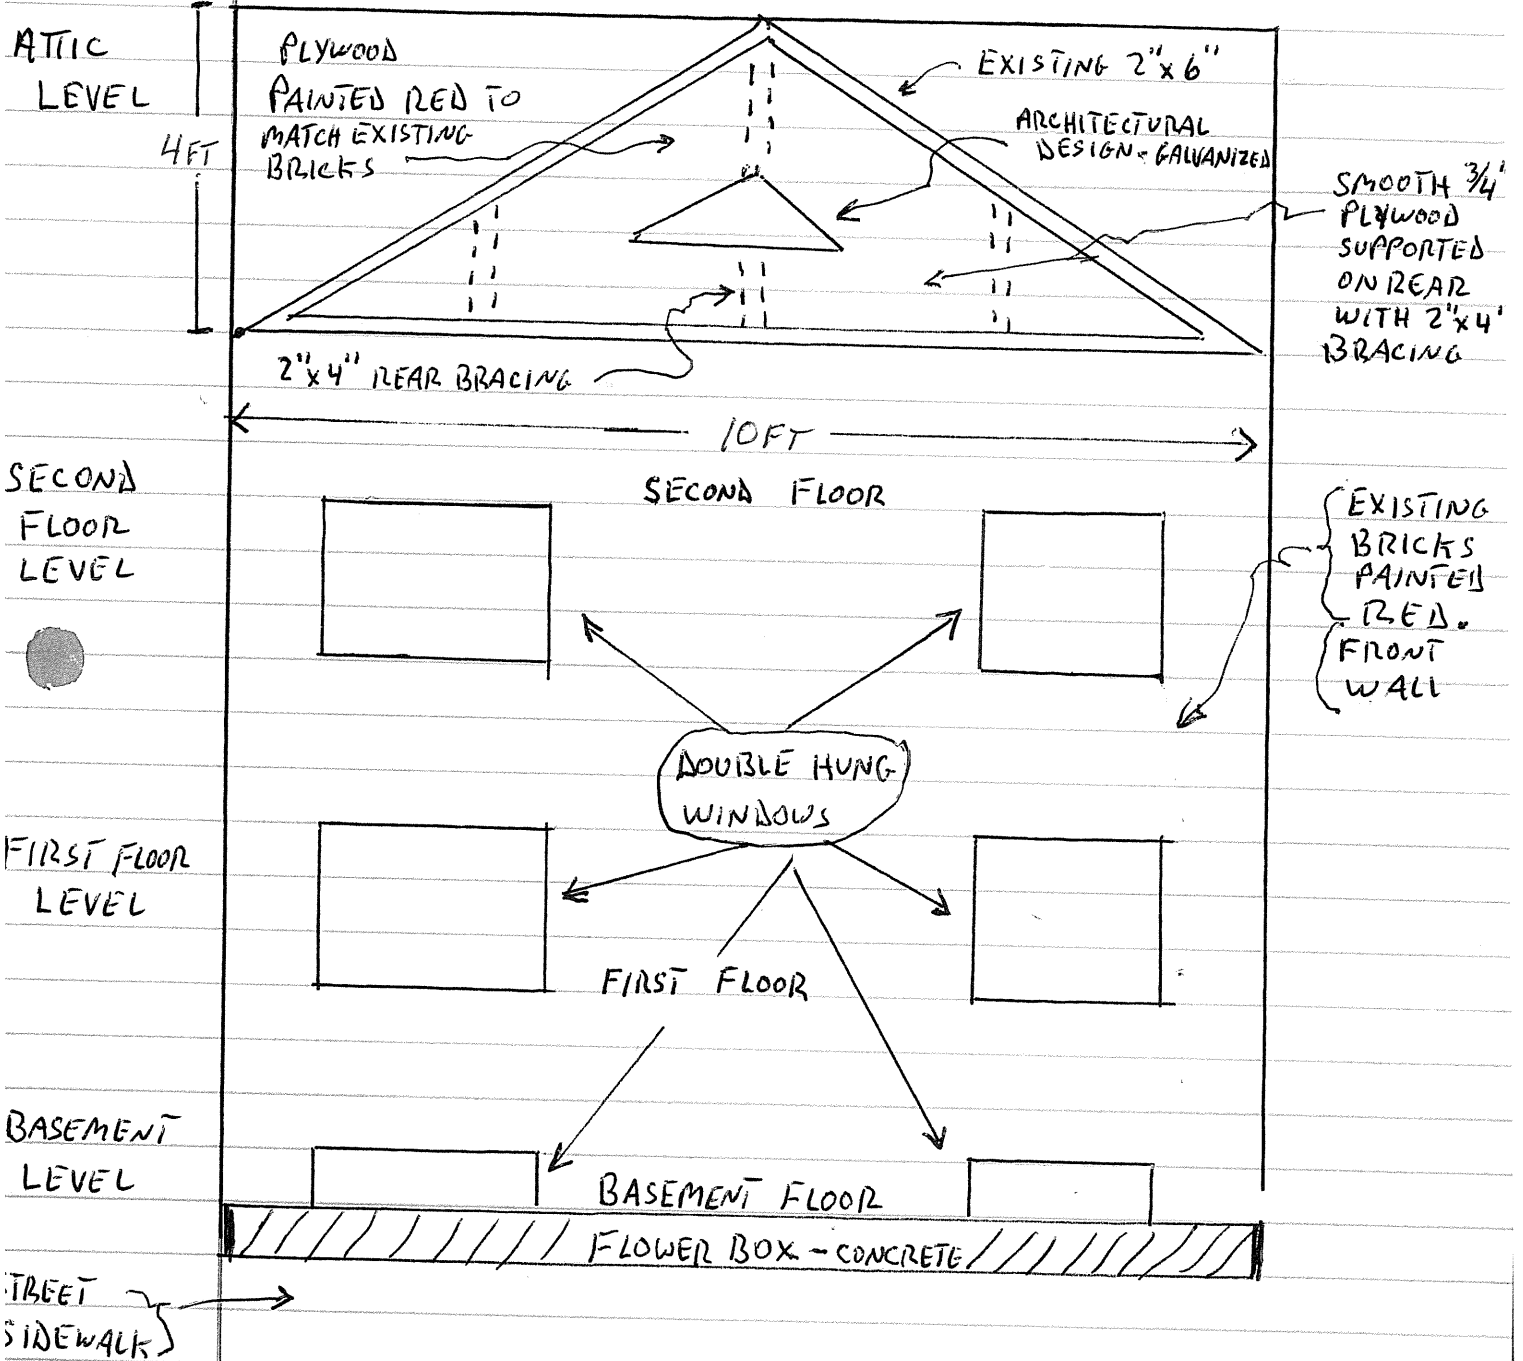 ATTIC
LEVEL
4FT
PLYWOOD
PAINTED RED TO
MATCH EXISTING
BRICKS
EXISTING 2"x6"
ARCHITECTURAL
DESIGN - GALVANIZED
SMOOTH 3/4'
PLYWOOD
SUPPORTED
ON REAR
WITH 2"x4'
BRACING
2"x4" REAR BRACING
10FT
SECOND
FLOOR
LEVEL
SECOND FLOOR
EXISTING
BRICKS
PAINTED
RED.
FRONT
WALL
DOUBLE HUNG
WINDOWS
FIRST FLOOR
LEVEL
FIRST FLOOR
BASEMENT
LEVEL
BASEMENT FLOOR
FLOWER BOX - CONCRETE
TREET
SIDEWALK